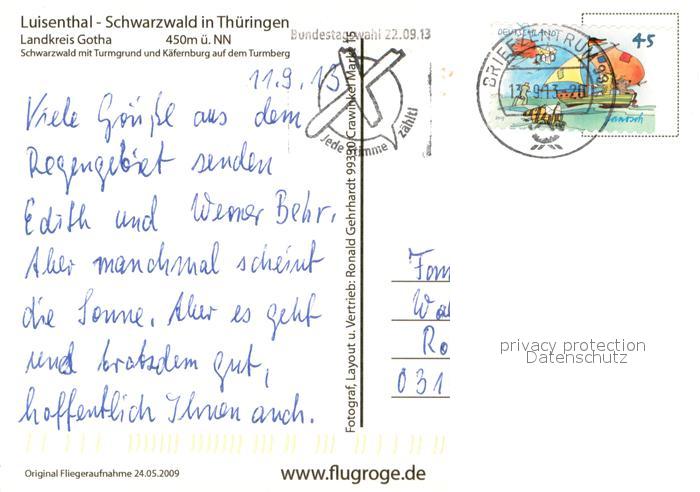 Luisenthal - Schwarzwald in Thüringen
Landkreis Gotha 450m ü. NN
Schwarzwald mit Turmgrund und Käfernburg auf dem Turmberg
Bundestagswahl 22.09.13
Jede Stimme zählt!
DEUTSCHLAND
45
Janosch
BRIEFZENTRUM 99
13.9.13-20
11.9.13
Viele Grüße aus dem
Regengebiet senden
Edith und Werner Behr.
Aber manchmal scheint
die Sonne. Aber es geht
und trotzdem gut,
hoffentlich Ihnen auch.
Fotograf, Layout u. Vertrieb: Ronald Gehrhardt 99330 Crawinkel
Fam
Wa
Ro
031
privacy protection
Datenschutz
Original Fliegeraufnahme 24.05.2009
www.flugroge.de